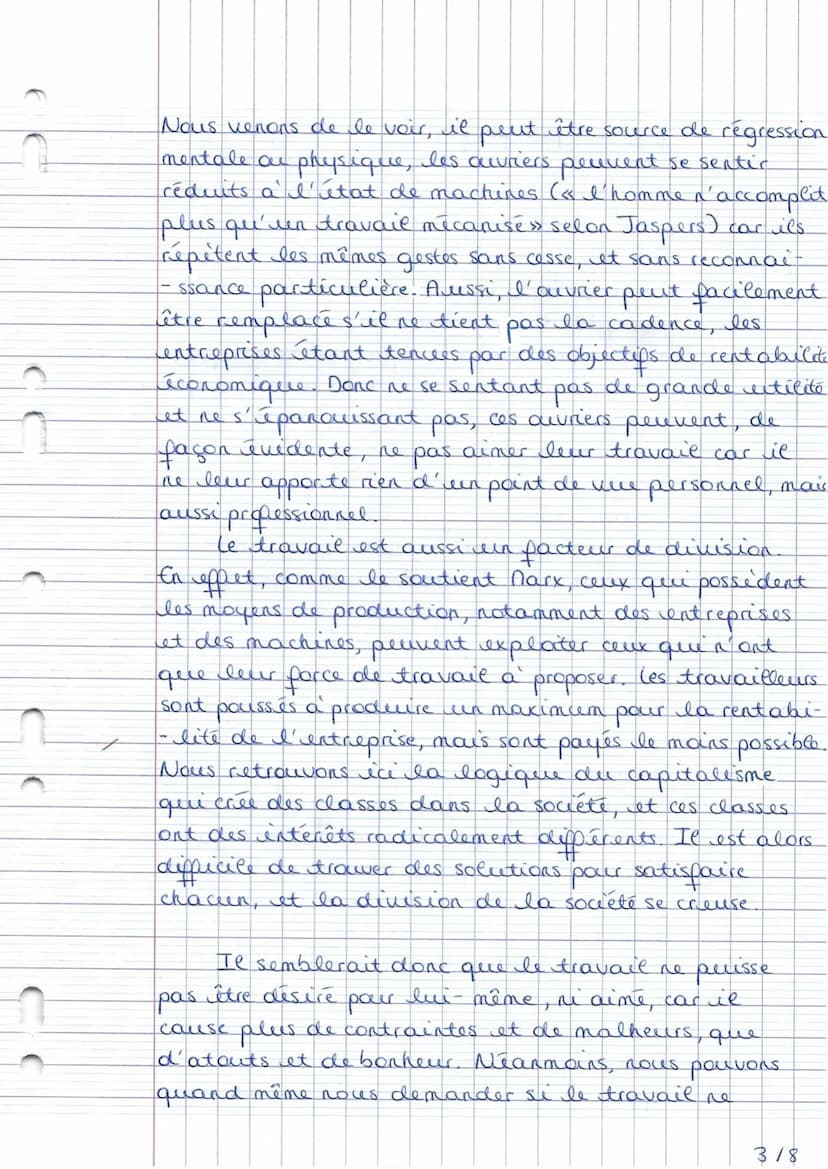 Nous venons de le voir, il peut être source de régression
mentale ou physique, les ouvriers peuvent se sentir
réduits à l'état de machines (« l'homme n'accomplit
plus qu'un travail mécanisé » selon Jaspers) car ils
répètent les mêmes gestes sans cesse, et sans reconnai-
-ssance particulière. Aussi, l'ouvrier peut facilement
être remplacé s'il ne tient pas la cadence, les
entreprises étant tenues par des objectifs de rentabilité
économique. Donc ne se sentant pas de grande utilité
et ne s'épanouissant pas, ces ouvriers peuvent, de
façon évidente, ne pas aimer leur travail car il
ne leur apporte rien d'un point de vue personnel, mais
aussi professionnel.
Le travail est aussi un facteur de division.
En effet, comme le soutient Marx, ceux qui possèdent
les moyens de production, notamment des entreprises
et des machines, peuvent exploiter ceux qui n'ont
que leur force de travail à proposer. Les travailleurs
sont poussés à produire un maximum pour la rentabi-
-lité de l'entreprise, mais sont payés le moins possible.
Nous retrouvons ici la logique du capitalisme
qui crée des classes dans la société, et ces classes
ont des intérêts radicalement différents. Il est alors
difficile de trouver des solutions pour satisfaire
chacun, et la division de la société se creuse.
Il semblerait donc que le travail ne puisse
pas être désiré pour lui-même, ni aimé, car il
cause plus de contraintes et de malheurs, que
d'atouts et de bonheur. Néanmoins, nous pouvons
quand même nous demander si le travail ne
3/8